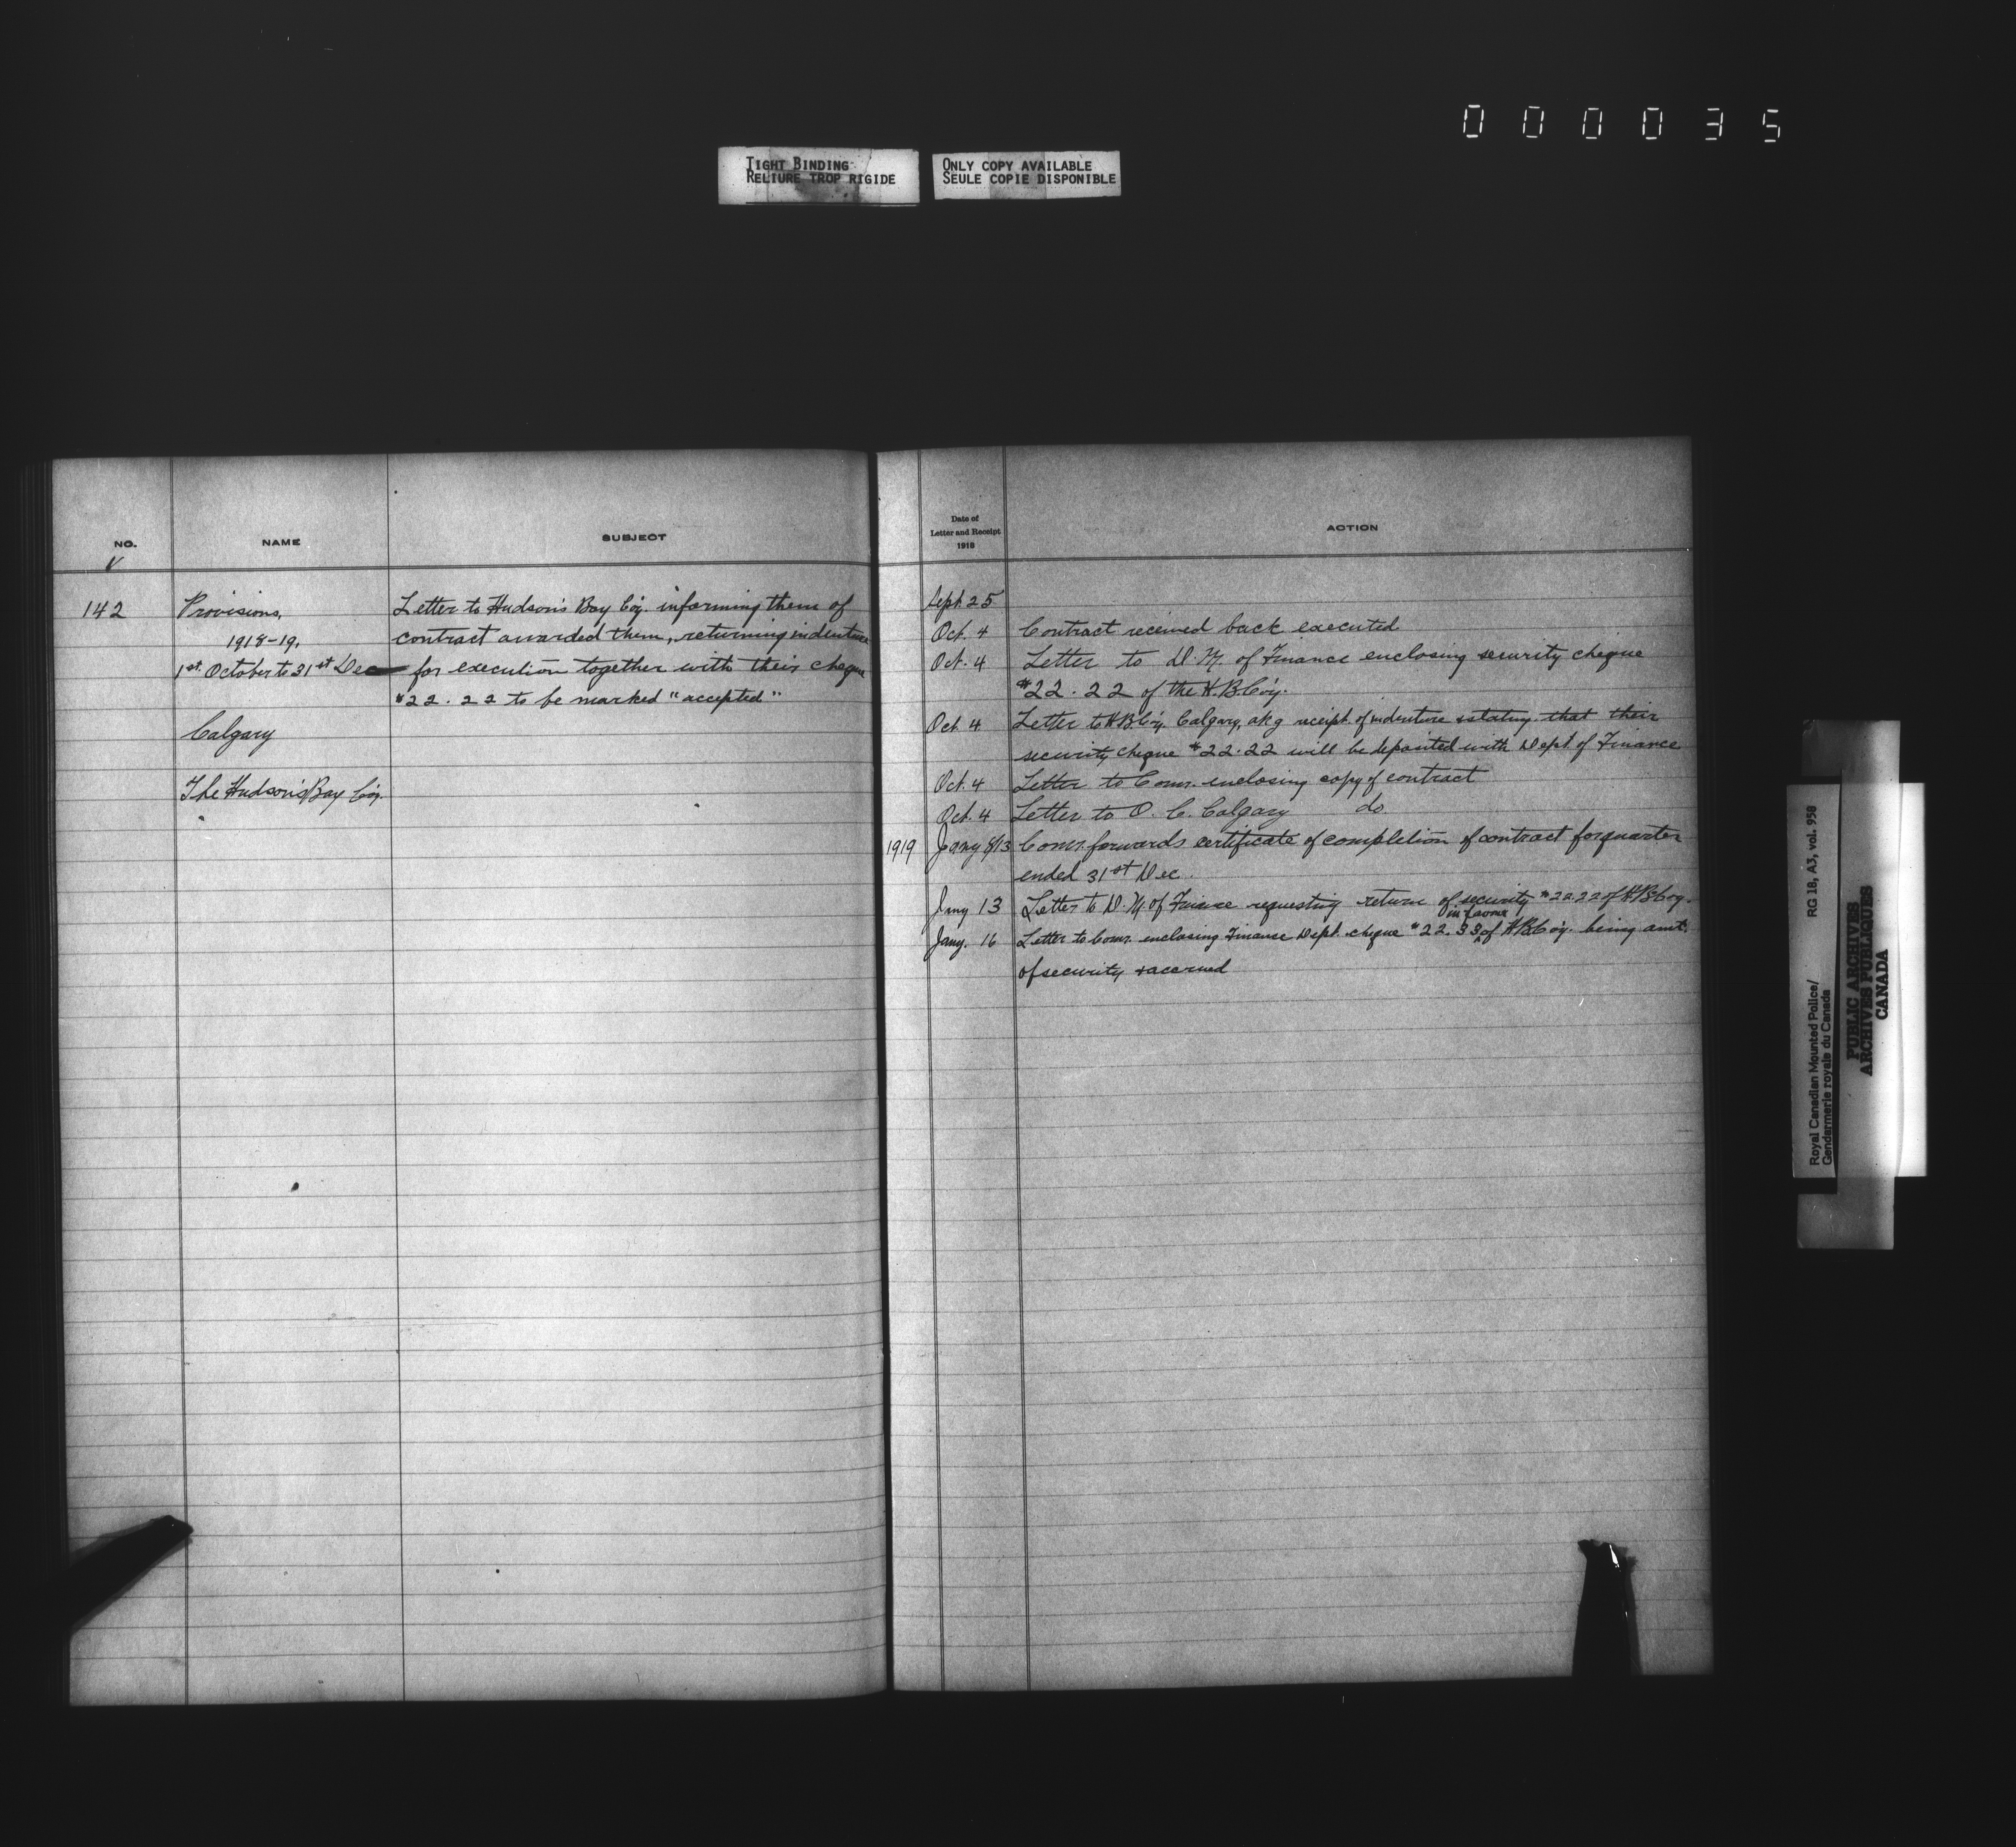 000035
TIGHT BINDING
RELIURE TROP RIGIDE
ONLY COPY AVAILABLE
SEULE COPIE DISPONIBLE
NO.
NAME
SUBJECT
142
Provisions,
1918-19.
1st October to 31st Dec
Calgary
The Hudson's Bay Co'y.
Letter to Hudson's Bay Co'y. informing them of
contract awarded them, returning indenture
for execution together with their cheque
$22.22 to be marked "accepted"
Date of
Letter and Receipt
1918
ACTION
Sept 25
Oct. 4 Contract received back executed
Oct. 4 Letter to D. M. of Finance enclosing security cheque
$22.22 of the H. B. Co'y.
Oct 4 Letter to H B Co'y. Calgary, akg receipt of indenture & stating that their
security cheque $22.22 will be deposited with Dept of Finance
Oct. 4 Letter to Comr. enclosing copy of contract
Oct. 4 Letter to O. C. Calgary do
1919 Jany 8/13 Comr. forwards certificate of completion of contract for quarter
ended 31st Dec.
Jany 13 Letter to D. M. of Finance requesting return of security $22.22 of H B Co'y.
in favour
Jany. 16 Letter to Comr. enclosing Finance Dept. cheque $22.33 of H B Co'y. being amt.
of security & accrued
Royal Canadian Mounted Police/
Gendarmerie royale du Canada
RG 18, A3, vol. 958
PUBLIC ARCHIVES
ARCHIVES PUBLIQUES
CANADA